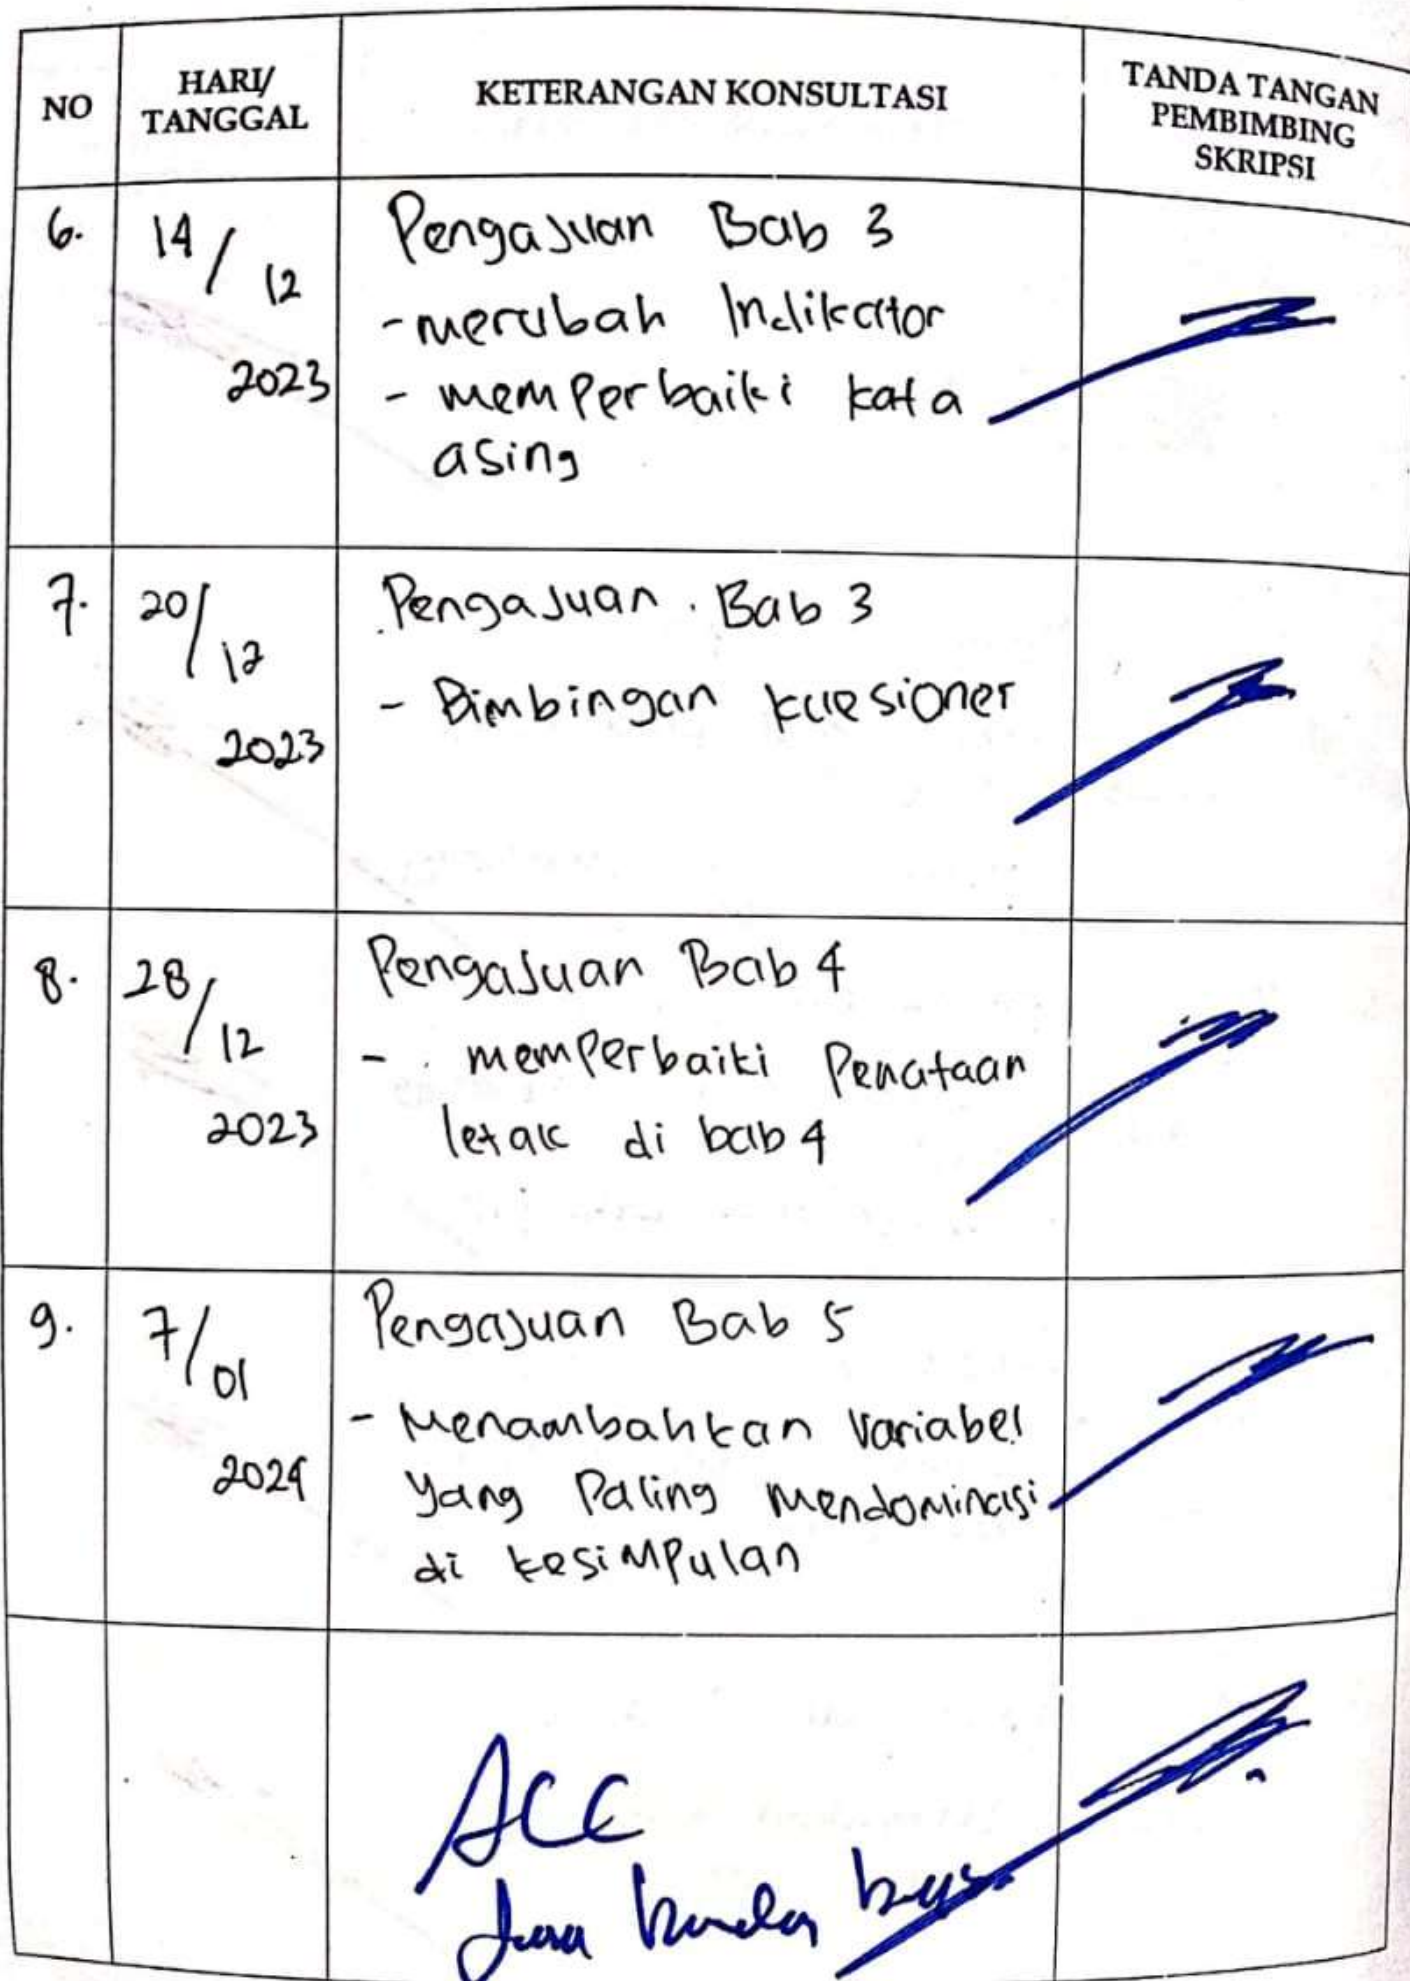 NO
HARI/
TANGGAL
KETERANGAN KONSULTASI
TANDA TANGAN
PEMBIMBING
SKRIPSI
6.
14/12
2023
Pengajuan Bab 3
- merubah Indikator
- memperbaiki kata
asing
7.
20/12
2023
Pengajuan Bab 3
- Bimbingan kuesioner
8.
28/12
2023
Pengajuan Bab 4
- memperbaiki Penataan
letak di bab 4
9.
7/01
2024
Pengajuan Bab 5
- Menambahkan Variabel
yang Paling mendominasi
di kesimpulan
ACC